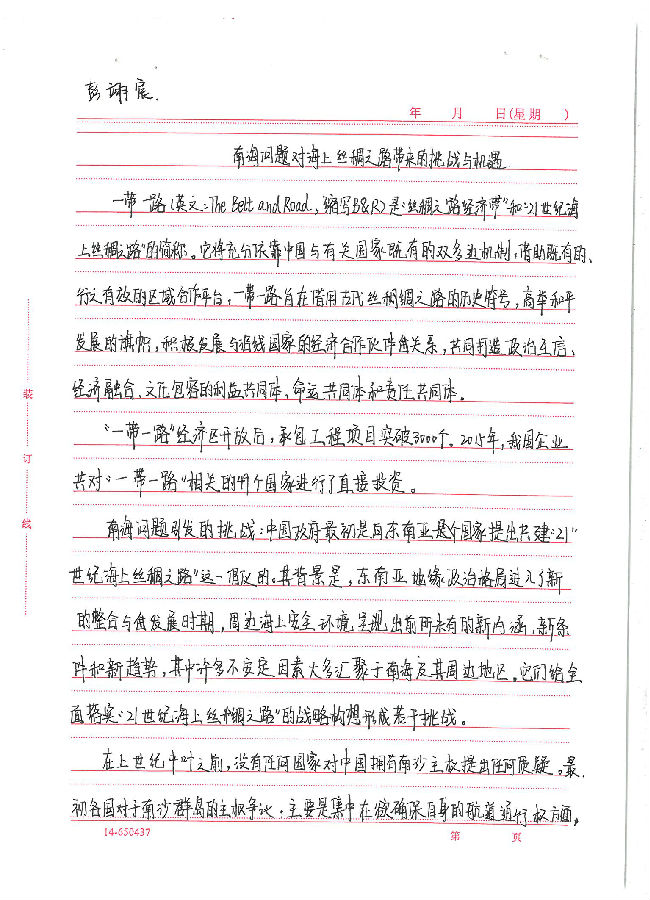 彭谢宸.
年 月 日(星期 )
南海问题对海上丝绸之路带来的挑战与机遇
一带一路(英文:The Belt and Road,缩写B&R)是"丝绸之路经济带"和"21世纪海
上丝绸之路"的简称。它将充分依靠中国与有关国家既有的双多边机制,借助既有的、
行之有效的区域合作平台,一带一路旨在借用古代丝绸之路的历史符号,高举和平
发展的旗帜,积极发展与沿线国家的经济合作伙伴关系,共同打造政治互信、
经济融合、文化包容的利益共同体,命运共同体和责任共同体。
"一带一路"经济区开放后,承包工程项目突破3000个。2015年,我国企业
共对"一带一路"相关的49个国家进行了直接投资。
南海问题引发的挑战:中国政府最初是向东南亚国家提出共建"21
世纪海上丝绸之路"这一倡议的。其背景是,东南亚地缘政治格局进入了新
的整合与发展时期,周边海上安全环境呈现出前所未有的新内涵、新条
件和新趋势,其中许多不安定因素大多汇聚于南海及其周边地区,它们给全
面落实"21世纪海上丝绸之路"的战略构想形成若干挑战。
在上世纪中叶之前,没有任何国家对中国拥有南沙主权提出任何质疑。最
初各国对于南沙群岛的主权争议,主要是集中在欲确保自身的航道通行权方面,
14-650437
第 页
装
订
线